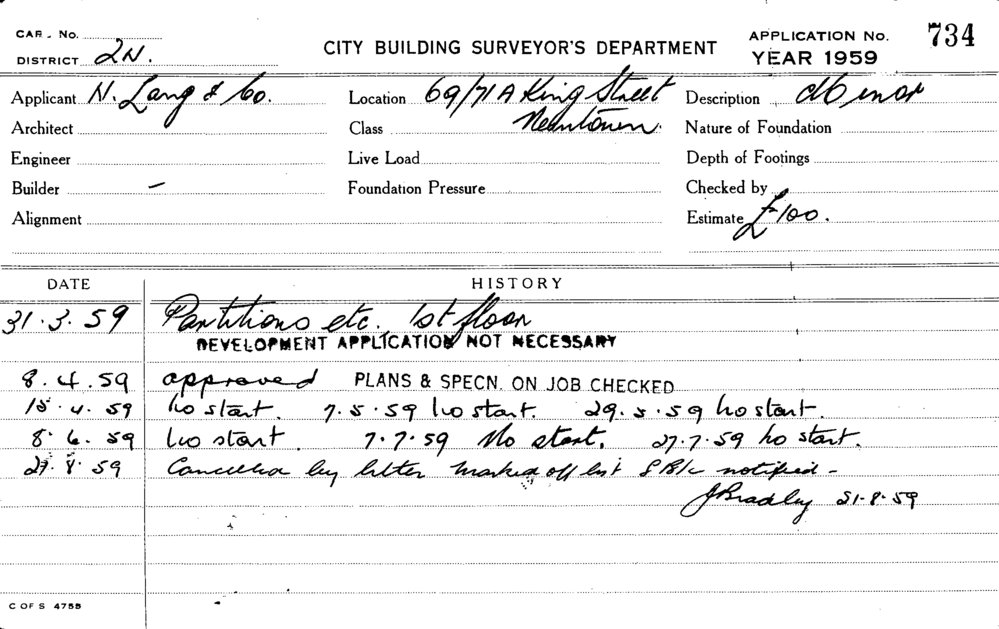 CAR. No.
DISTRICT 2N.
CITY BUILDING SURVEYOR'S DEPARTMENT
APPLICATION No. 734
YEAR 1959
Applicant N. Lang & Co. Location 69/71A King Street Description Minor
Architect Class Newtown. Nature of Foundation
Engineer Live Load Depth of Footings
Builder – Foundation Pressure Checked by
Alignment Estimate £100.
DATE HISTORY
31.3.59 Partitions etc. 1st floor
DEVELOPMENT APPLICATION NOT NECESSARY
8.4.59 approved PLANS & SPECN. ON JOB CHECKED
15.4.59 No start. 7.5.59 No start. 29.5.59 No start.
8.6.59 No start. 7.7.59 No start. 27.7.59 No start.
21.8.59 Cancelled by letter marked off list notified –
J Bradley 21.8.59
C OF S 4755